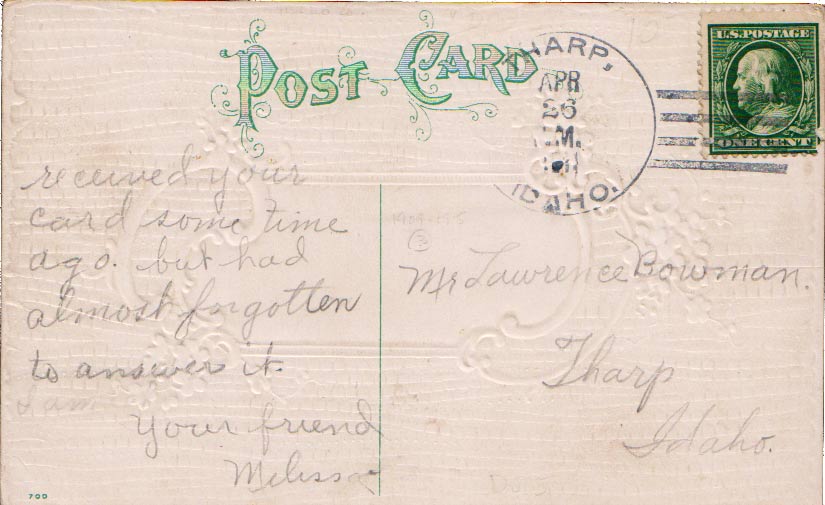 POST CARD
THARP,
APR
26
M.
IDAHO.
U.S. POSTAGE
ONE CENT
received your
card some time
ago. but had
almost forgotten
to answer it.
I am
Your friend
Melissa
Mr Lawrence Bowman.
Tharp
Idaho.
700